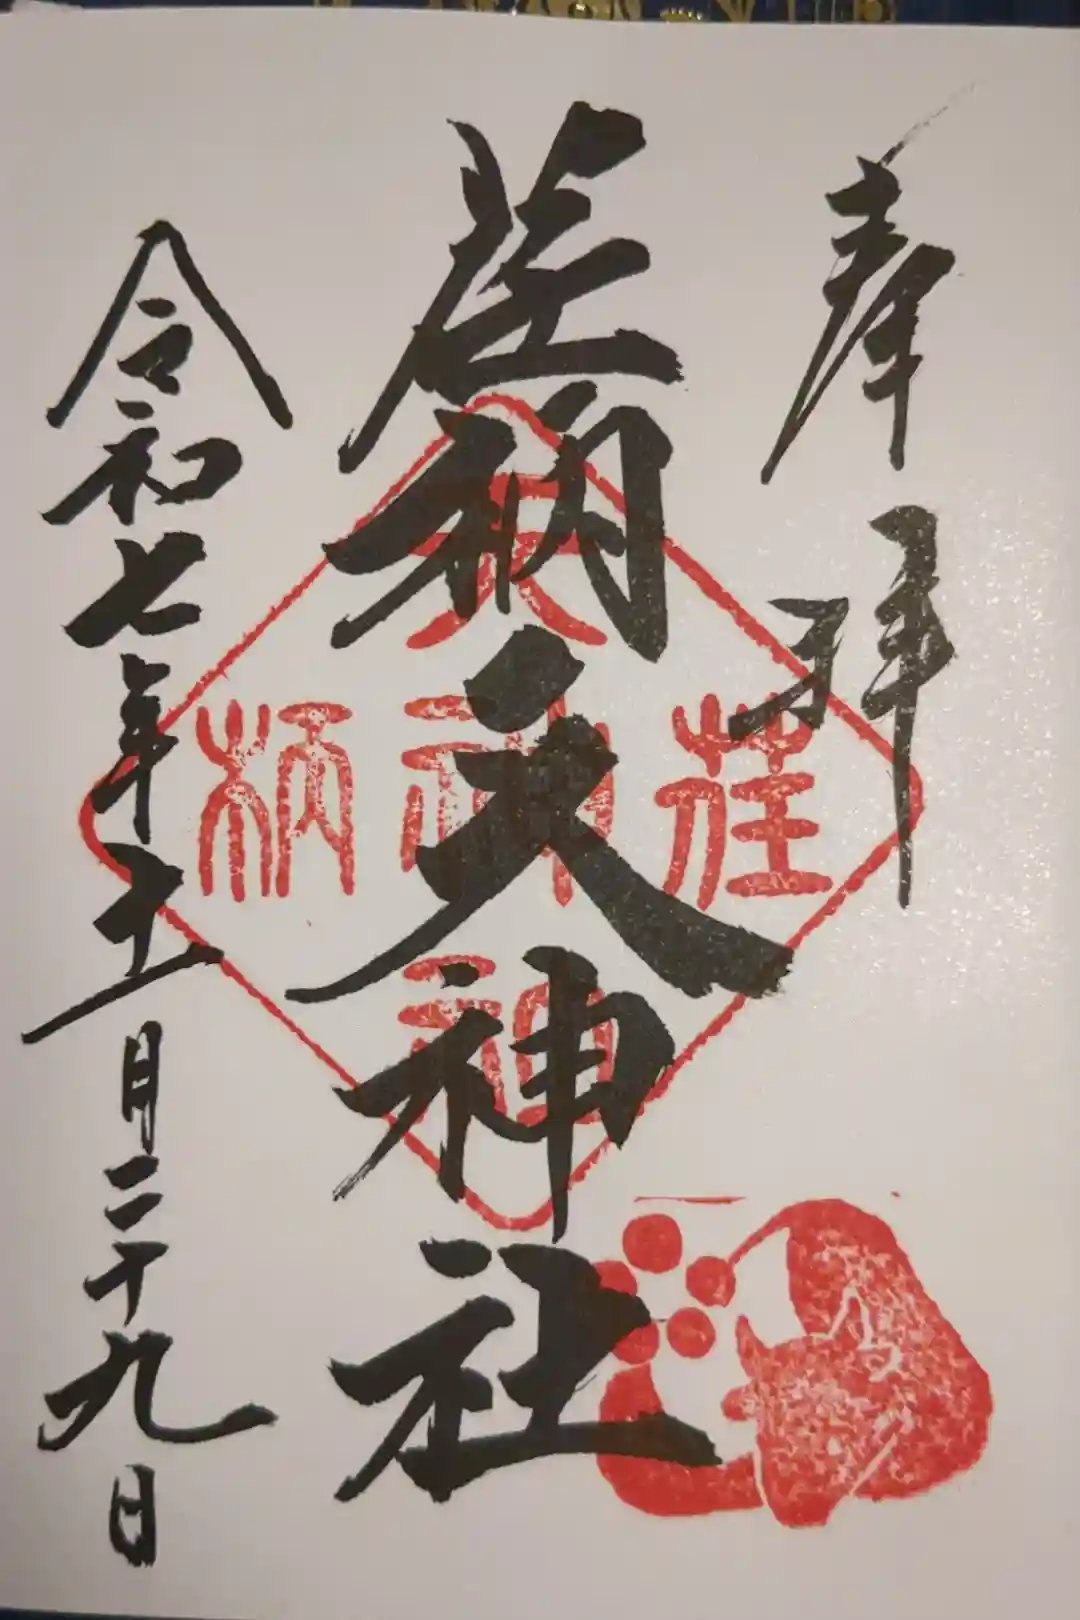 奉拝
荏柄天神社
令和七年十一月二十九日
荏柄天神